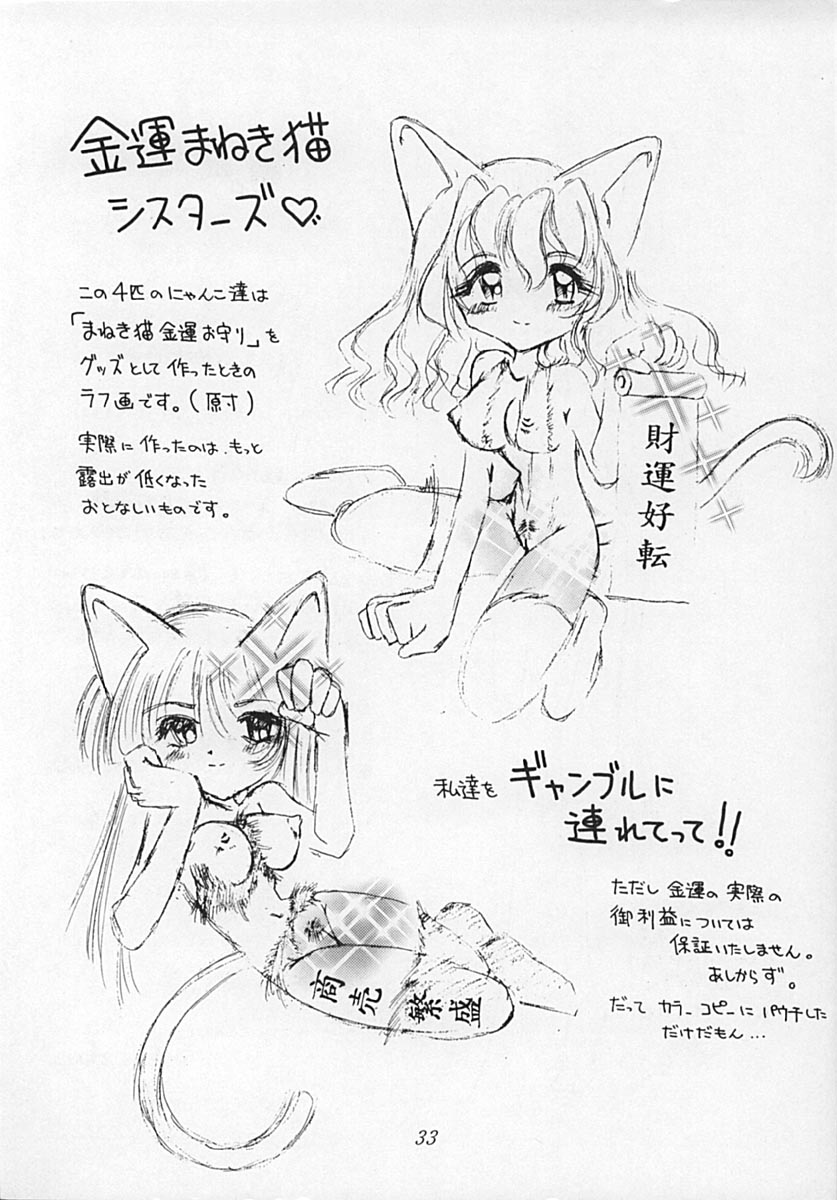 金運まねき猫
シスターズ♡
この4匹のにゃんこ達は
「まねき猫金運お守り」を
グッズとして作ったときの
ラフ画です。(原寸)
実際に作ったのは、もっと
露出が低くなった
おとなしいものです。
財運好転
私達をギャンブルに
連れてって!!
商売繁盛
ただし金運の実際の
御利益については
保証いたしません。
あしからず。
だってカラーコピーにパウチした
だけだもん…
33